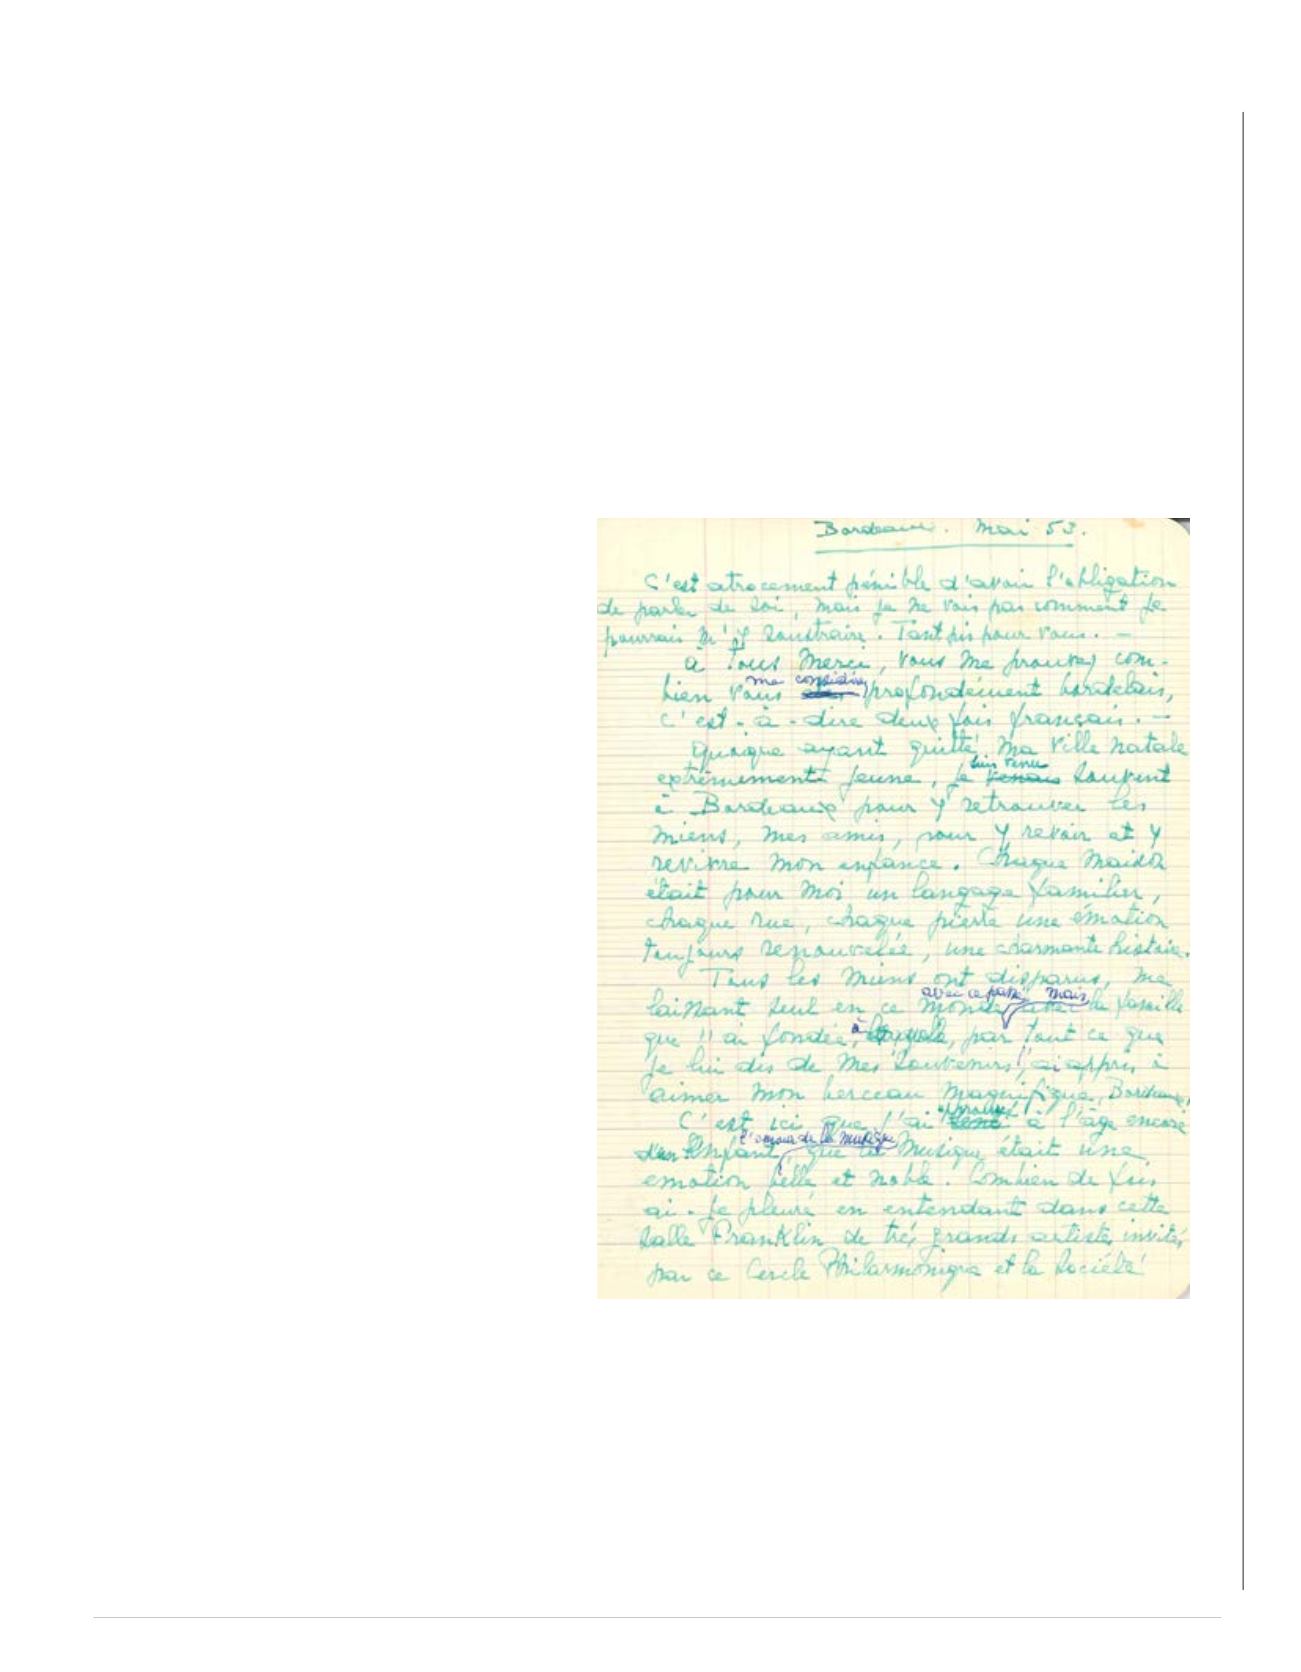 Bordeaux. Mai 53.
C'est atrocement pénible d'avoir l'obligation
de parler de soi, mais je ne vois pas comment je
pourrais m'y soustraire. Tant pis pour vous. —
à Tous Merci, vous me prouvez com-
me considérez
bien vous profondément bordelais,
c'est-à-dire deux fois français. —
Quoique ayant quitté ma ville natale
suis venu
extrêmement jeune, je venais souvent
à Bordeaux pour y retrouver les
miens, mes amis, pour y revoir et y
revivre mon enfance. Chaque maison
était pour moi un langage familier,
chaque rue, chaque pierre une émotion
toujours renouvelée, une charmante histoire.
Tous les miens ont disparus, me
avec ce passé mais
laissant seul en ce monde avec la famille
que j'ai fondée, à laquelle, par tout ce que
je lui dis de mes souvenirs, j'ai appris à
aimer mon berceau magnifique, Bordeaux,
éprouvé
C'est ici que j'ai senti à l'âge encore
l'amour de la musique
d'un Enfant, que la Musique était une
emotion belle et noble. Combien de fois
ai-je pleuré en entendant dans cette
Salle Franklin de très grands artistes invités
par ce Cercle Philarmonique et la Société